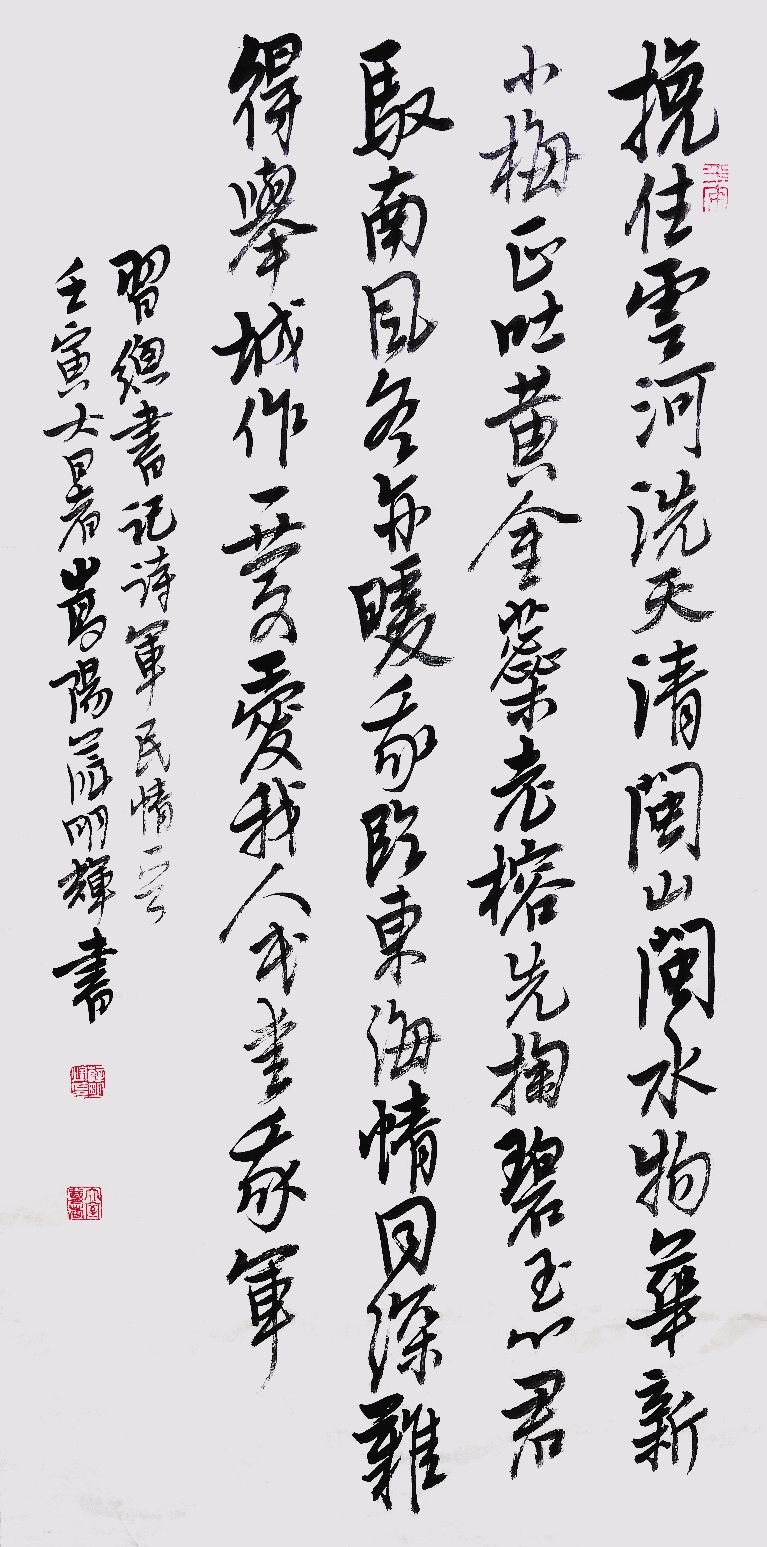 挽住雲河洗天清閩山閩水物華新
小梅正吐黄金蕊老榕先掬碧玉心君
馭南風冬亦暖我臨東海情同深難
得舉城作一慶愛我人民愛我軍
習總書記诗軍民情一首
壬寅大暑嵩陽明輝書